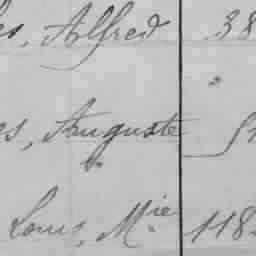 es, Alfred 38
"
es, Auguste
Louis, M.ie 118